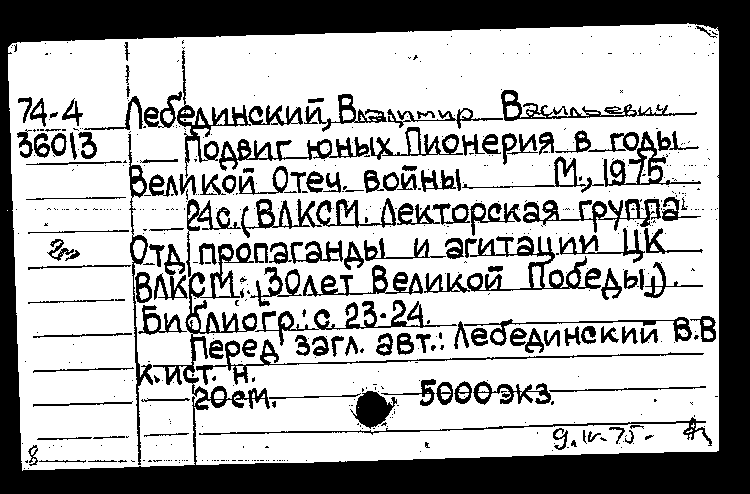 74-4 Лебединский, Владимир Васильевич
36013 Подвиг юных. Пионерия в годы
Великой Отеч. войны. М., 1975.
24с. (ВЛКСМ. Лекторская группа
Отд. пропаганды и агитации ЦК
ВЛКСМ. „30 лет Великой Победы„).
Библиогр.: с. 23-24.
Перед загл. авт.: Лебединский В.В
к.ист. н.
20см. 5000экз.
9.IV-75-
8